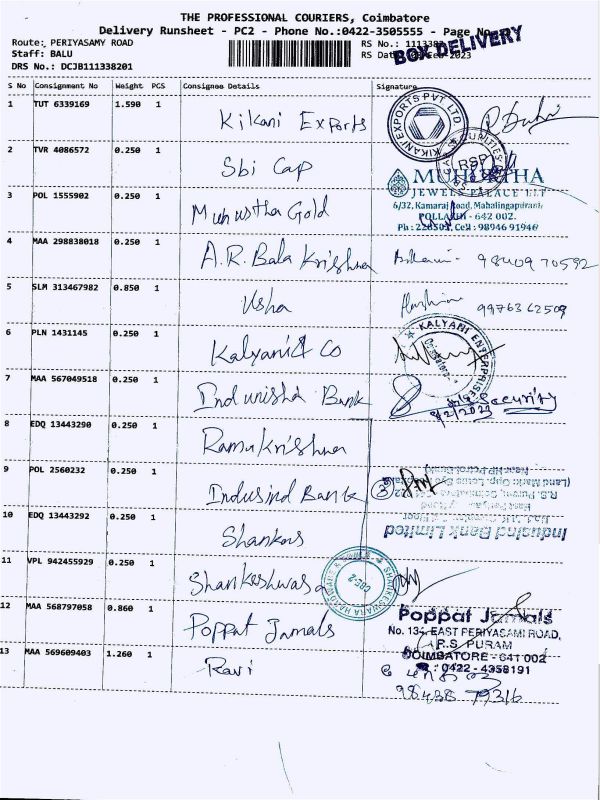 THE PROFESSIONAL COURIERS, Coimbatore
Delivery Runsheet - PC2 - Phone No.:0422-3505555 - Page No
Route: PERIYASAMY ROAD
Staff: BALU
DRS No.: DCJB111338201
RS No.: 1113382
RS Dat Feb-2023
BOX DELIVERY
S No Consignment No Weight PCS Consignee Details Signature
1 TUT 6339169 1.590 1 Kikani Exports
KIKANI EXPORTS PVT LTD
2 TVR 4086572 0.250 1 Sbi Cap
RSP
MUHURTHA
JEWELS PALACE LLP
6/32, Kamaraj Road, Mahalingapuram,
POLLACHI - 642 002.
Cell : 98946 91946
3 POL 1555902 0.250 1 Muhurtha Gold
4 MAA 298838018 0.250 1 A.R. Bala Krishna
98409 70592
5 SLM 313467982 0.850 1 Usha
99763 62509
6 PLN 1431145 0.250 1 Kalyani & Co
KALYANI ENTERPRISES
Coimbatore
7 MAA 567049518 0.250 1 Indunisha Bank
Security
8/2/2023
8 EDQ 13443290 0.250 1 Ramakrishna
9 POL 2560232 0.250 1 Indusind Bank
3
Indusind Bank Limited
10 EDQ 13443292 0.250 1 Shankars
11 VPL 942455929 0.250 1 Shankeshwara
SHANKESHWARA HARDWARE &
CBE-2
12 MAA 568797058 0.860 1 Poppat Jamals
Poppat Jamals
No. 134, EAST PERIYASAMI ROAD,
R.S. PURAM
COIMBATORE - 641 002
: 0422 - 4358191
13 MAA 569609403 1.260 1 Ravi
98438 79316